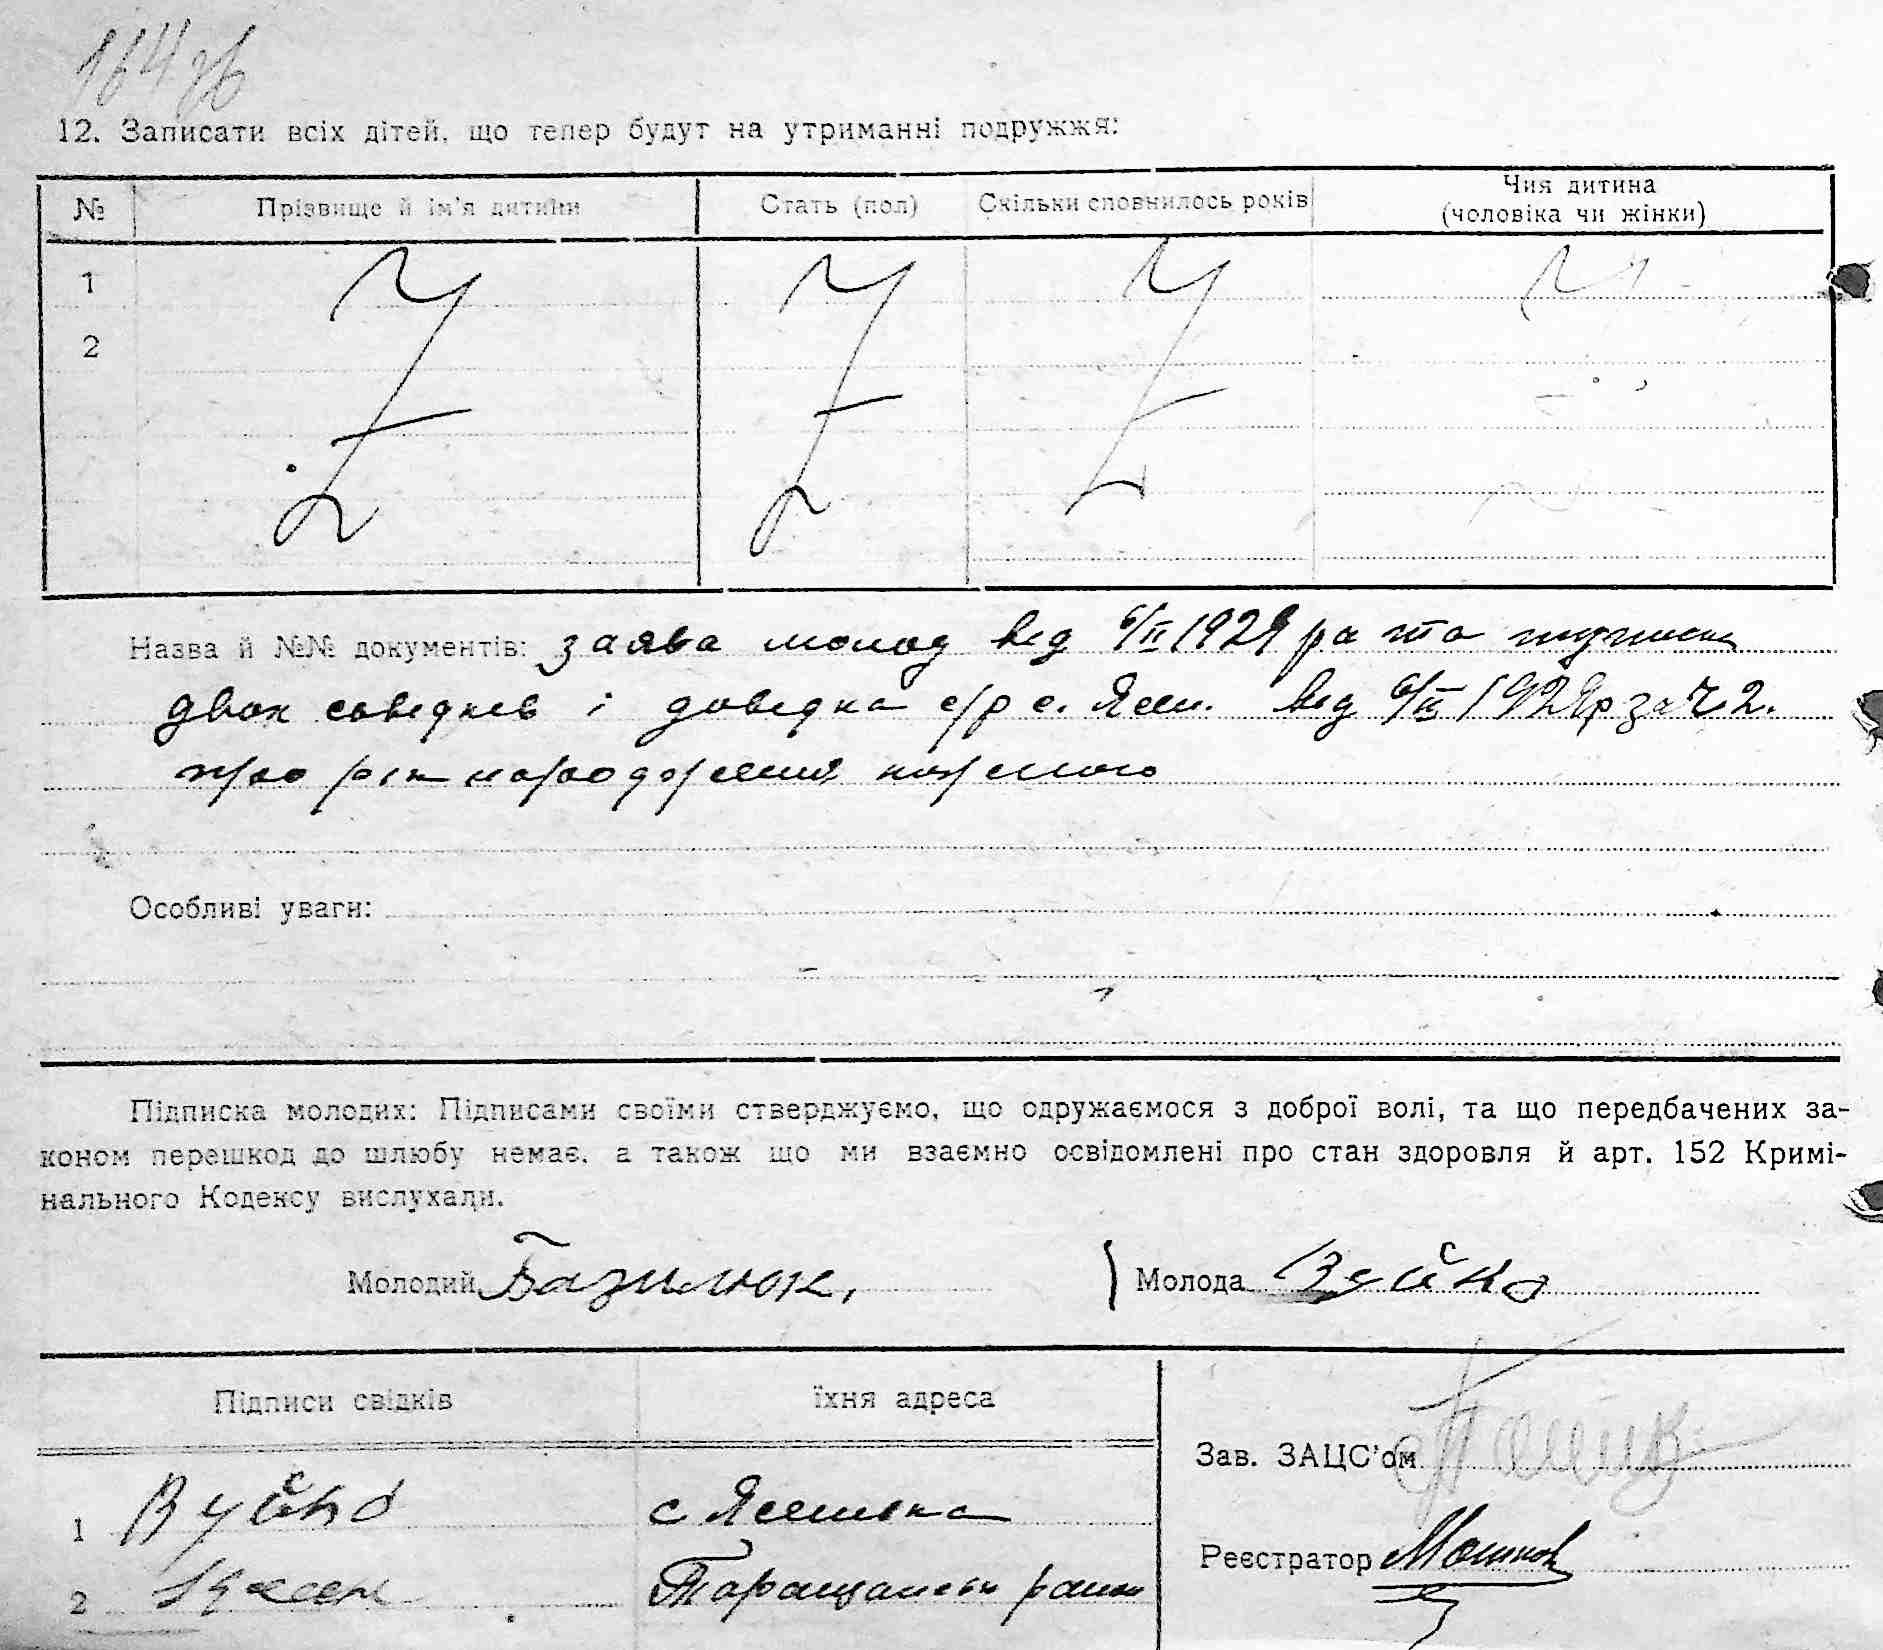 164 зв
12. Записати всіх дітей, що тепер будут на утриманні подружжя:
№ Прізвище й ім'я дитини Стать (пол) Скільки сповнилось років Чия дитина (чоловіка чи жінки)
1
2
Назва й №№ документів: заява молод від 6/II 1929 р та підписка
двох свідків і довідка с/р с. Ясен. від 6/II 1929 р за ч. 2.
про рік народження кожного
Особливі уваги:
Підписка молодих: Підписами своїми стверджуємо, що одружаємося з доброї волі, та що передбачених за-
коном перешкод до шлюбу немає, а також що ми взаємно освідомлені про стан здоровля й арт. 152 Кримі-
нального Кодексу вислухали.
Молодий Базилюк, Молода Вуйко
Підписи свідків Їхня адреса
Зав. ЗАЦС'ом
1 Вуйко с Ясенівка
Реєстратор
2 Таращанськ район